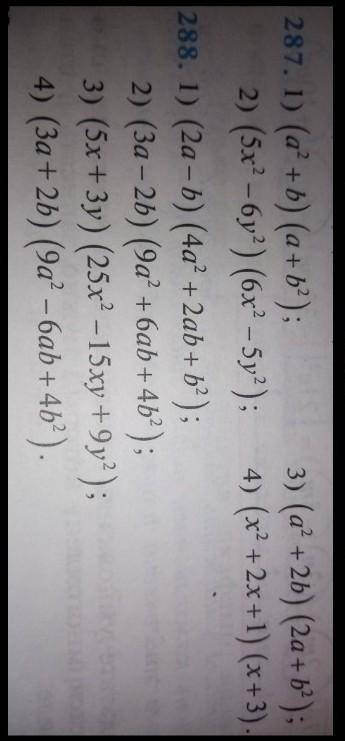 287. 1) (a² + b) (a + b²); 3) (a² + 2b) (2a + b²);
2) (5x² – 6y²) (6x² – 5y²); 4) (x² + 2x + 1) (x + 3).
288. 1) (2a – b) (4a² + 2ab + b²);
2) (3a – 2b) (9a² + 6ab + 4b²);
3) (5x + 3y) (25x² – 15xy + 9y²);
4) (3a + 2b) (9a² – 6ab + 4b²).